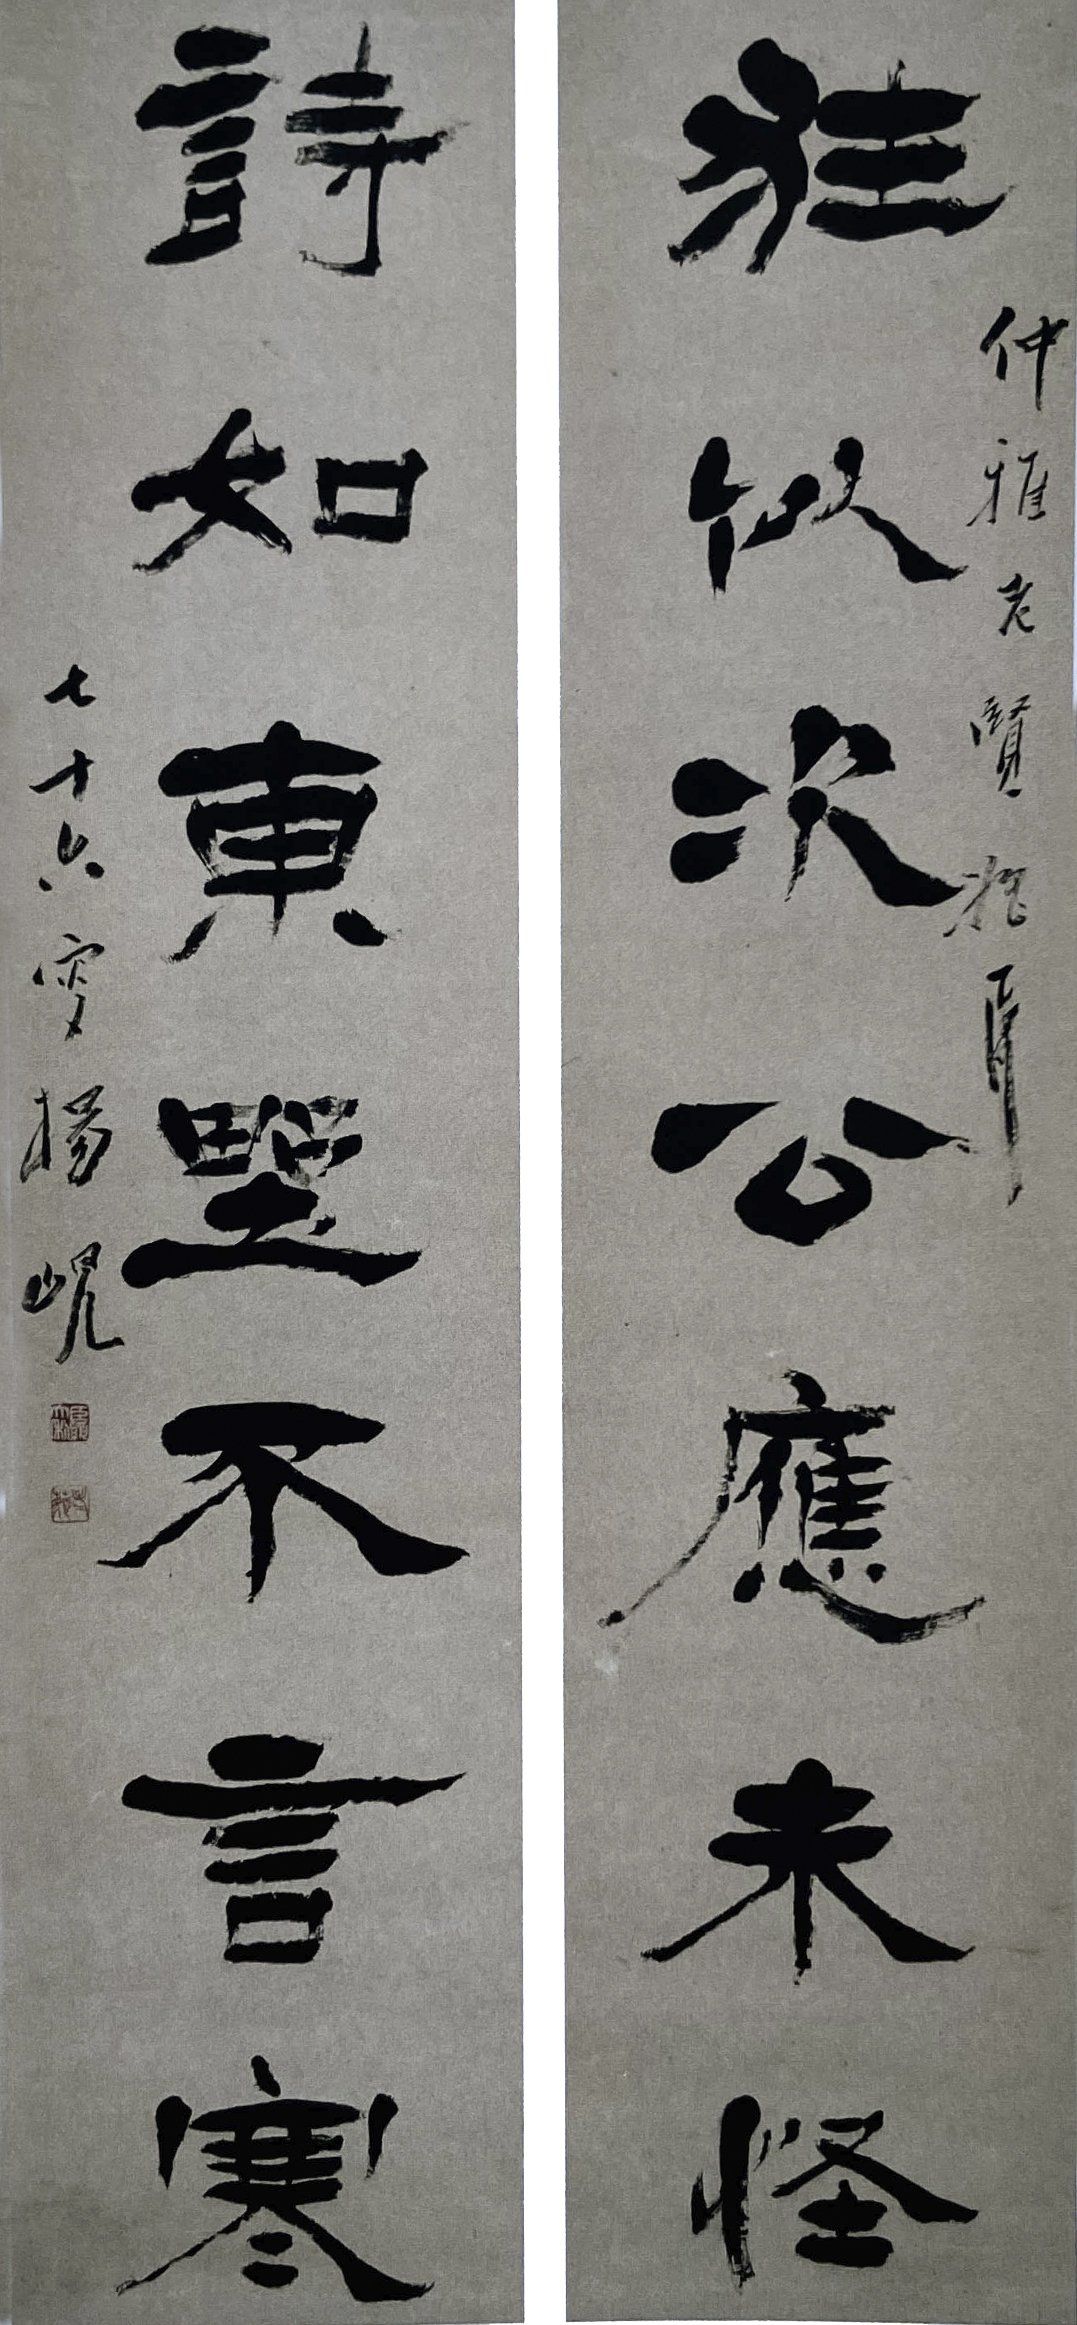 狂似次公應未怪
仲雅老賢屬
詩如東野不言寒
七十六叟楊峴